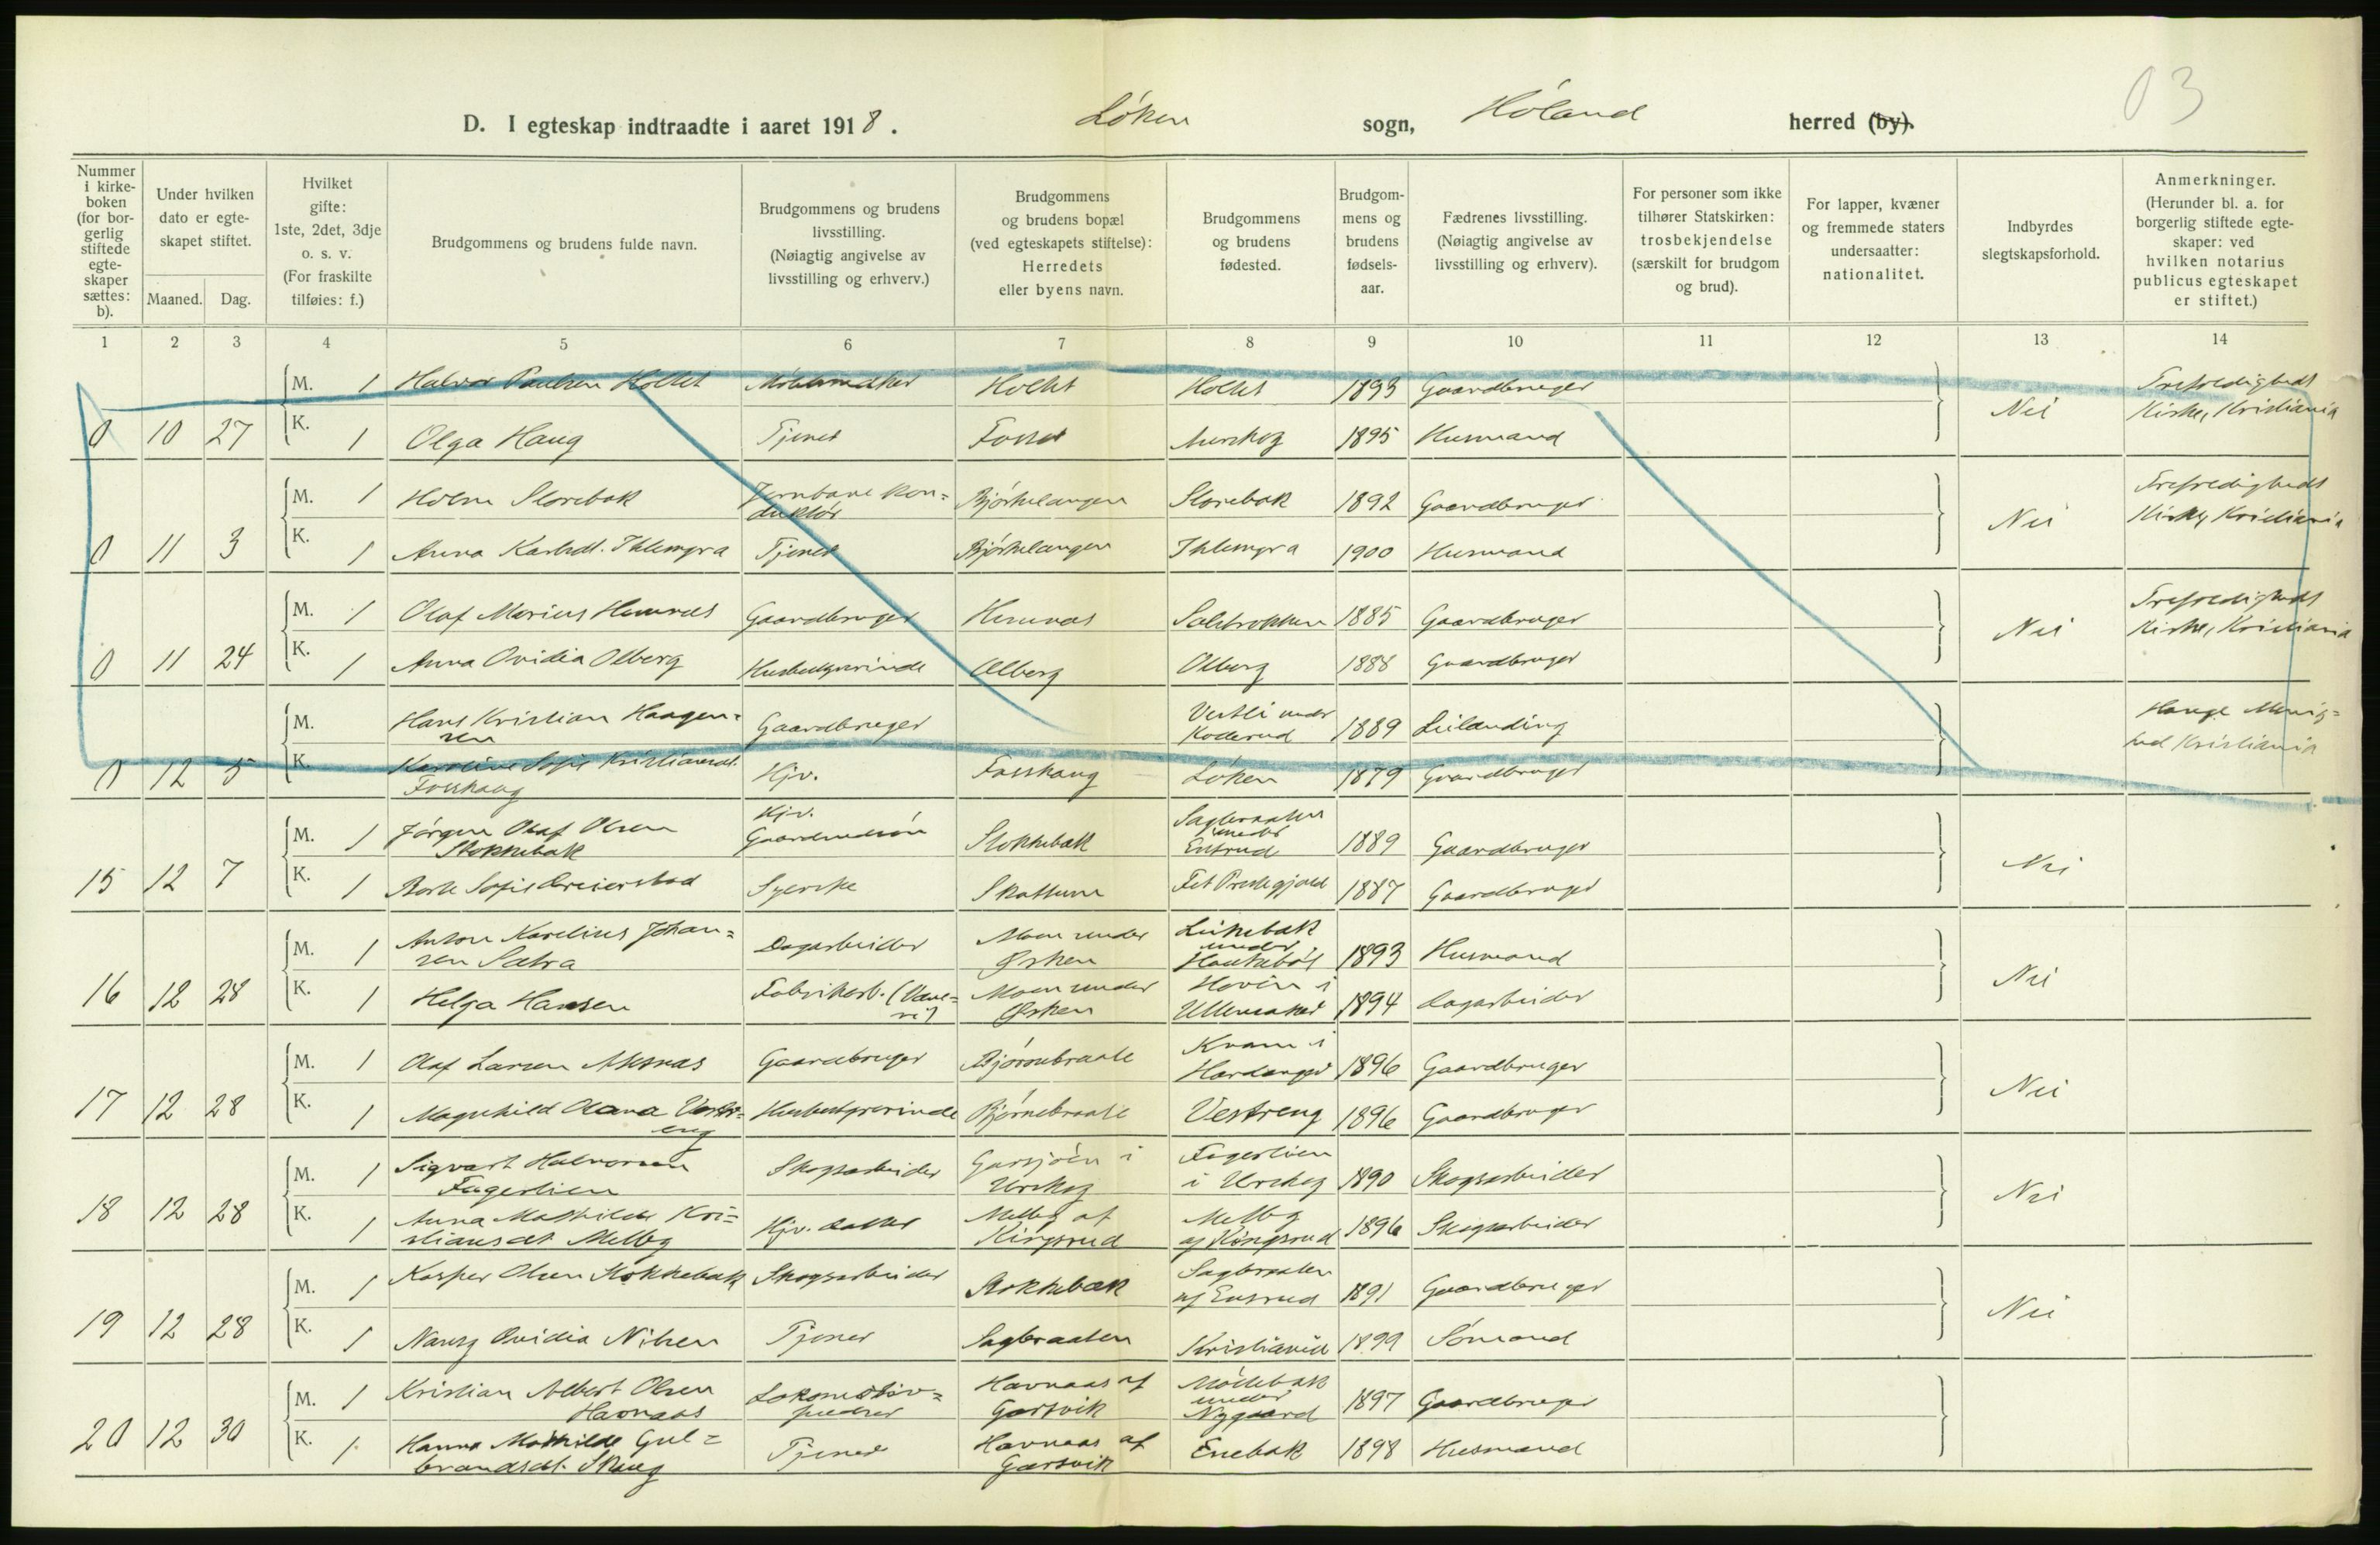 03
D. I egteskap indtraadte i aaret 1918. Løken sogn, Høland herred (by).
Nummer i kirkeboken (for borgerlig stiftede egteskaper sættes: b).
Under hvilken dato er egteskapet stiftet.
Maaned. Dag.
Hvilket gifte: 1ste, 2det, 3dje o. s. v. (For fraskilte tilføies: f.)
Brudgommens og brudens fulde navn.
Brudgommens og brudens livsstilling. (Nøiagtig angivelse av livsstilling og erhverv.)
Brudgommens og brudens bopæl (ved egteskapets stiftelse): Herredets eller byens navn.
Brudgommens og brudens fødested.
Brudgommens og brudens fødselsaar.
Fædrenes livsstilling. (Nøiagtig angivelse av livsstilling og erhverv).
For personer som ikke tilhører Statskirken: trosbekjendelse (særskilt for brudgom og brud).
For lapper, kvæner og fremmede staters undersaatter: nationalitet.
Indbyrdes slegtskapsforhold.
Anmerkninger. (Herunder bl. a. for borgerlig stiftede egteskaper: ved hvilken notarius publicus egteskapet er stiftet.)
1 2 3 4 5 6 7 8 9 10 11 12 13 14
M. 1 Halvor Paulsen Holtet Holtet Holtet 1893 Gaardbruger Trefoldigheds
0 10 27 K. 1 Olga Haug Tjener Fosser Aurskog 1895 Husmand Nei Kirke, Kristiania
M. 1 Holm Storebak Jernbane kon= Bjørkelangen Storebak 1892 Gaardbruger Trefoldigheds
duktør
0 11 3 K. 1 Anna Karlsdt. Ihlemyra Tjener Bjørkelangen Ihlemyra 1900 Husmand Nei Kirke, Kristiania
M. 1 Olaf Marius Hemnes Gaardbruger Hemnes 1885 Gaardbruger Trefoldigheds
0 11 24 K. 1 Anna Ovidia Olberg Husbestyrerinde Olberg Olberg 1888 Gaardbruger Nei Kirke, Kristiania
M. Hans Kristian Haagen= Gaardbruger Vestli under 1889 Leilænding Hauge Menig=
sen Koderud hed Kristiania
0 12 5 K. Karoline Sofie Kristiansdt. Hjv. Fosshaug Løken 1879 Gaardbruger
Fosshaug
M. 1 Jørgen Olaf Olsen Hjv. Stokkebæk Sagbraaten 1889 Gaardbruger
Stokkebæk under
15 12 7 K. 1 Sofie Dreierstad Syerske Skattum Fet Prestegjæld 1887 Gaardbruger Nei
M. 1 Anton Karelius Johan= Dagarbeider Moen under 1893 Husmand
sen Sætra Ørsken under
16 12 28 K. 1 Helga Hansen Fabrikarb. (Væve= Moen under Hovin i 1894 Dagarbeider Nei
ri) Ørsken Ullensaker
M. 1 Olaf Larsen Aksnes Gaardbruger Bjørnebraate Kvam i 1896 Gaardbruger
Hardanger
17 12 28 K. 1 Magnhild Olava Vestr= Husbestyrerinde Bjørnebraate Vestreng 1896 Gaardbruger Nei
eng
M. 1 Sigvart Halvorsen Skogsarbeider Garsjøen i Fagerlien 1890 Skogsarbeider
Fagerlien Urskog i Urskog
18 12 28 K. 1 Anna Mathilde Kri= Hjv. datter Melby af Melby 1896 Skogsarbeider Nei
stiansdt. Melby Kinsrud
M. 1 Kasper Olsen Stokkebæk Skogsarbeider Stokkebæk Sagbraaten 1891 Gaardbruger
af Ensrud
19 12 28 K. 1 Nancy Ovidia Nilsen Tjener Sagbraaten Kristiania 1899 Sømand Nei
M. 1 Kristian Albert Olsen Lokomotiv= Havnaas af Møllebæk 1897 Gaardbruger
Havnaas pudser Garsvik under Nygaard
20 12 30 K. 1 Hanna Mathilde Gul= Tjener Havnaas af Enebak 1898 Husmand
brandsdt. Skaug Garsvik